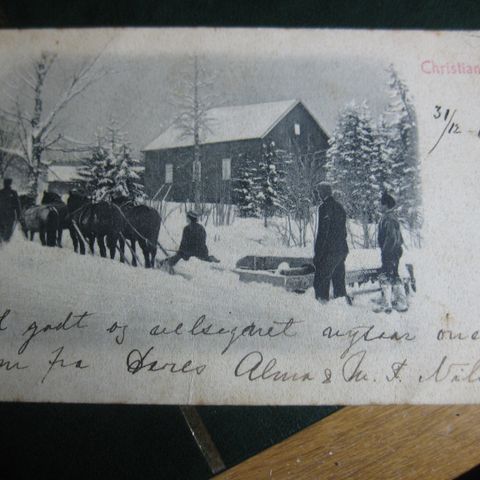 Christian
31/12
godt og velsegnet nytaar
fra Deres Alma & M. F.